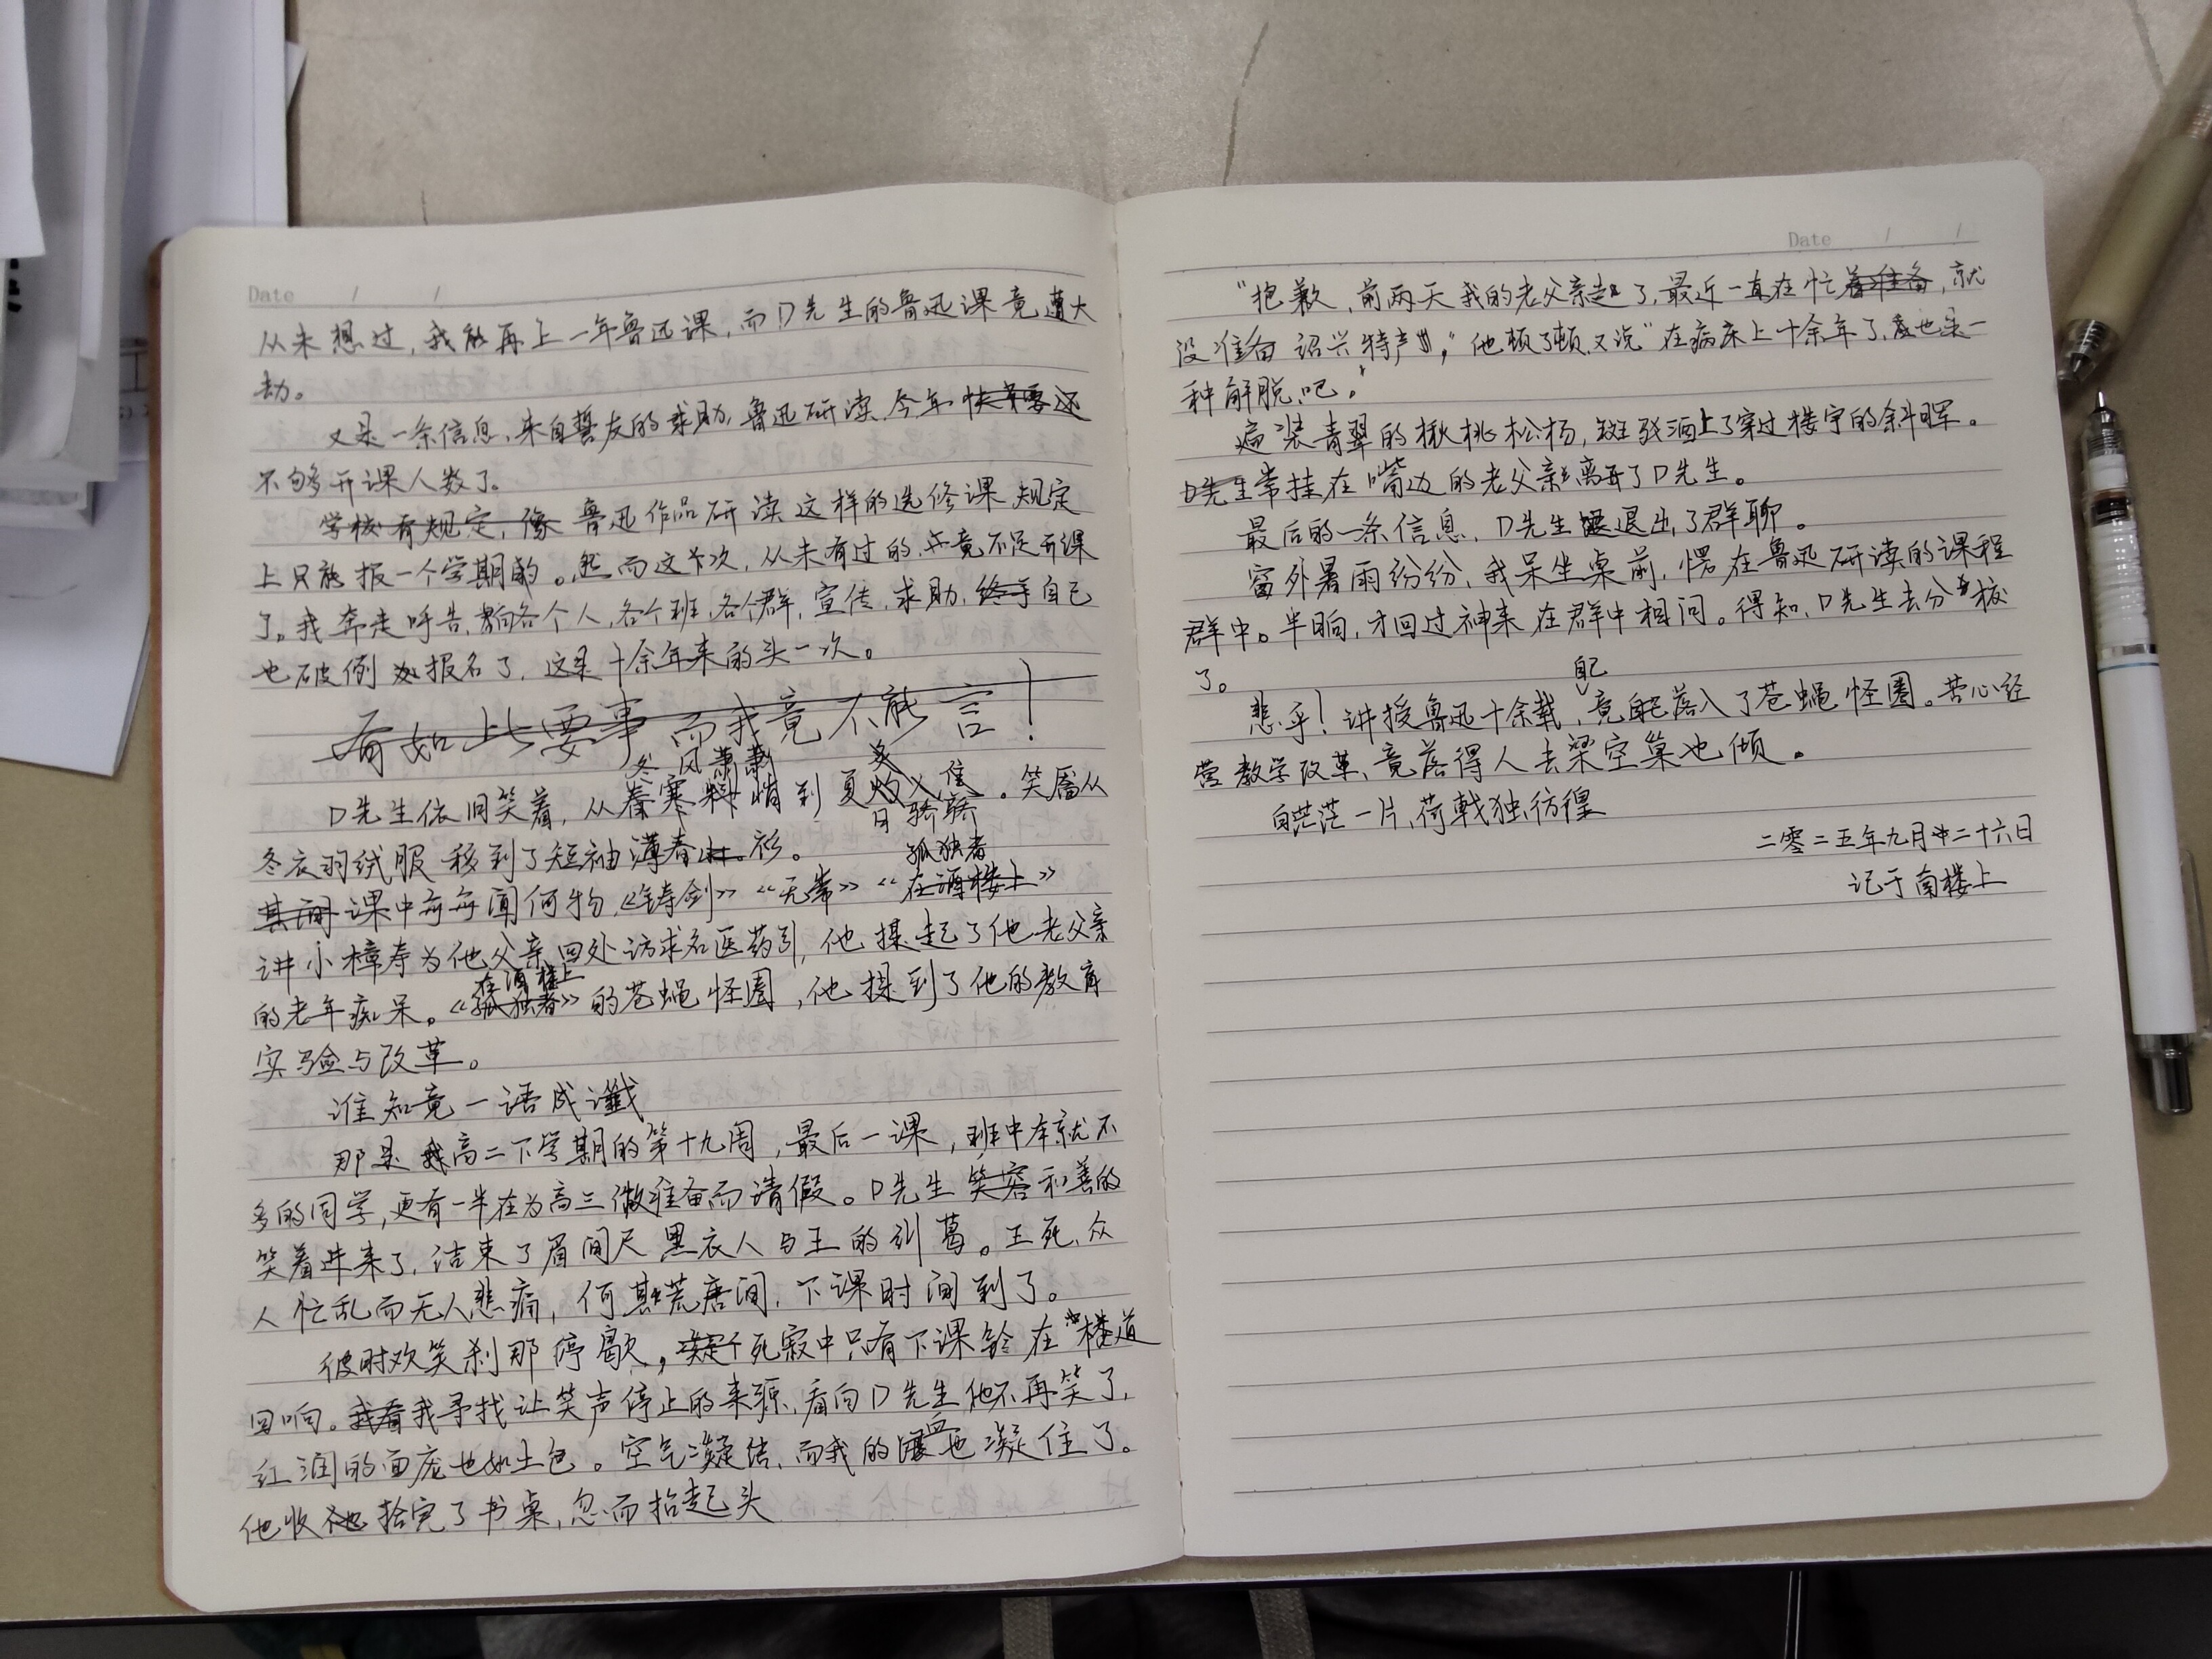 Date / /
从未想过，我能再上一年鲁迅课，而D先生的鲁迅课竟遭大
劫。
又是一条信息，来自挚友的求助，鲁迅研读，今年
不够开课人数了。
鲁迅作品研读这样的选修课规定
上只能报一个学期的。然而这次，从未有过的，竟不足开课
了。我奔走呼告，向各个人，各个班，各个群，宣传，求助，自己
也破例报名了，这是十余年来的头一次。
有如此要事而我竟不能言！
冬风萧萧 炎
D先生依旧笑着，从到夏。笑靥从
日骄骄
冬衣羽绒服移到了短袖薄春衫。
孤独者
课中每每闻何物，《铸剑》《无常》《在酒楼上》
讲小樟寿为他父亲四处访求名医药引，他提起了他老父亲
在酒楼上
的老年痴呆。《孤独者》的苍蝇怪圈，他提到了他的教育
实验与改革。
谁知竟一语成谶
那是我高二下学期的第十九周，最后一课，班中本就不
多的同学，更有一半在为高三做准备而请假。D先生和善的
笑着进来了，结束了眉间尺黑衣人与王的纠葛。王死，众
人忙乱而无人悲痛，何其荒唐间，下课时间到了。
彼时欢笑刹那停歇，死寂中只有下课铃在楼道
回响。我寻找让笑声停止的来源，看向D先生他不再笑了，
红润的面庞也如土色。空气凝结，而我的血也凝住了。
他收拾完了书桌，忽而抬起头
Date / /
“抱歉，前两天我的老父亲走了，最近一直在忙，就
没准备绍兴特产，”他顿了顿，又说“在病床上十余年了，也是一
种解脱吧。”
遍装青翠的楸桃松杨，斑驳洒上了穿过楼宇的余晖。
常挂在嘴边的老父亲离开了D先生。
最后的一条信息，D先生退出了群聊。
窗外暑雨纷纷，我呆坐桌前，愣在鲁迅研读的课程
群中。半晌，才回过神来在群中相问。得知，D先生去分校
了。
自己
悲乎！讲授鲁迅十余载，竟落入了苍蝇怪圈。苦心经
营教学改革，竟落得人去梁空巢也倾。
白茫茫一片，荷戟独彷徨
二零二五年九月二十六日
记于南楼上